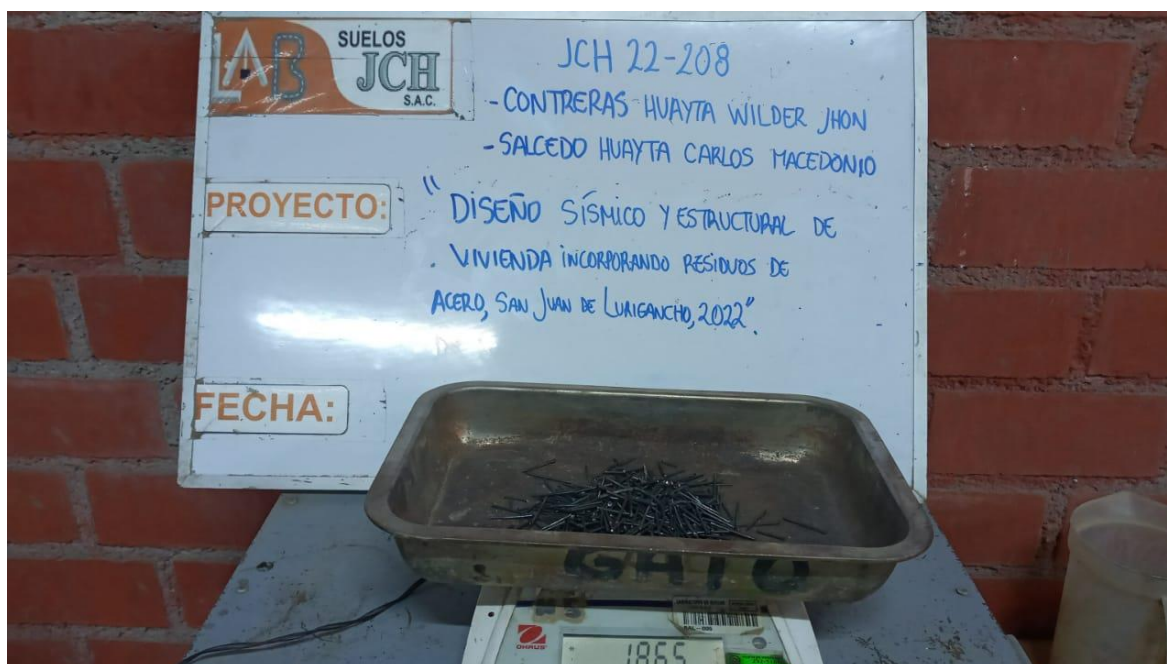 LAB
SUELOS
JCH
S.A.C.
JCH 22-208
- CONTRERAS HUAYTA WILDER JHON
- SALCEDO HUAYTA CARLOS MACEDONIO
PROYECTO:
" DISEÑO SÍSMICO Y ESTRUCTURAL DE
. VIVIENDA INCORPORANDO RESIDUOS DE
ACERO, SAN JUAN DE LURIGANCHO, 2022".
FECHA:
OHAUS
1865